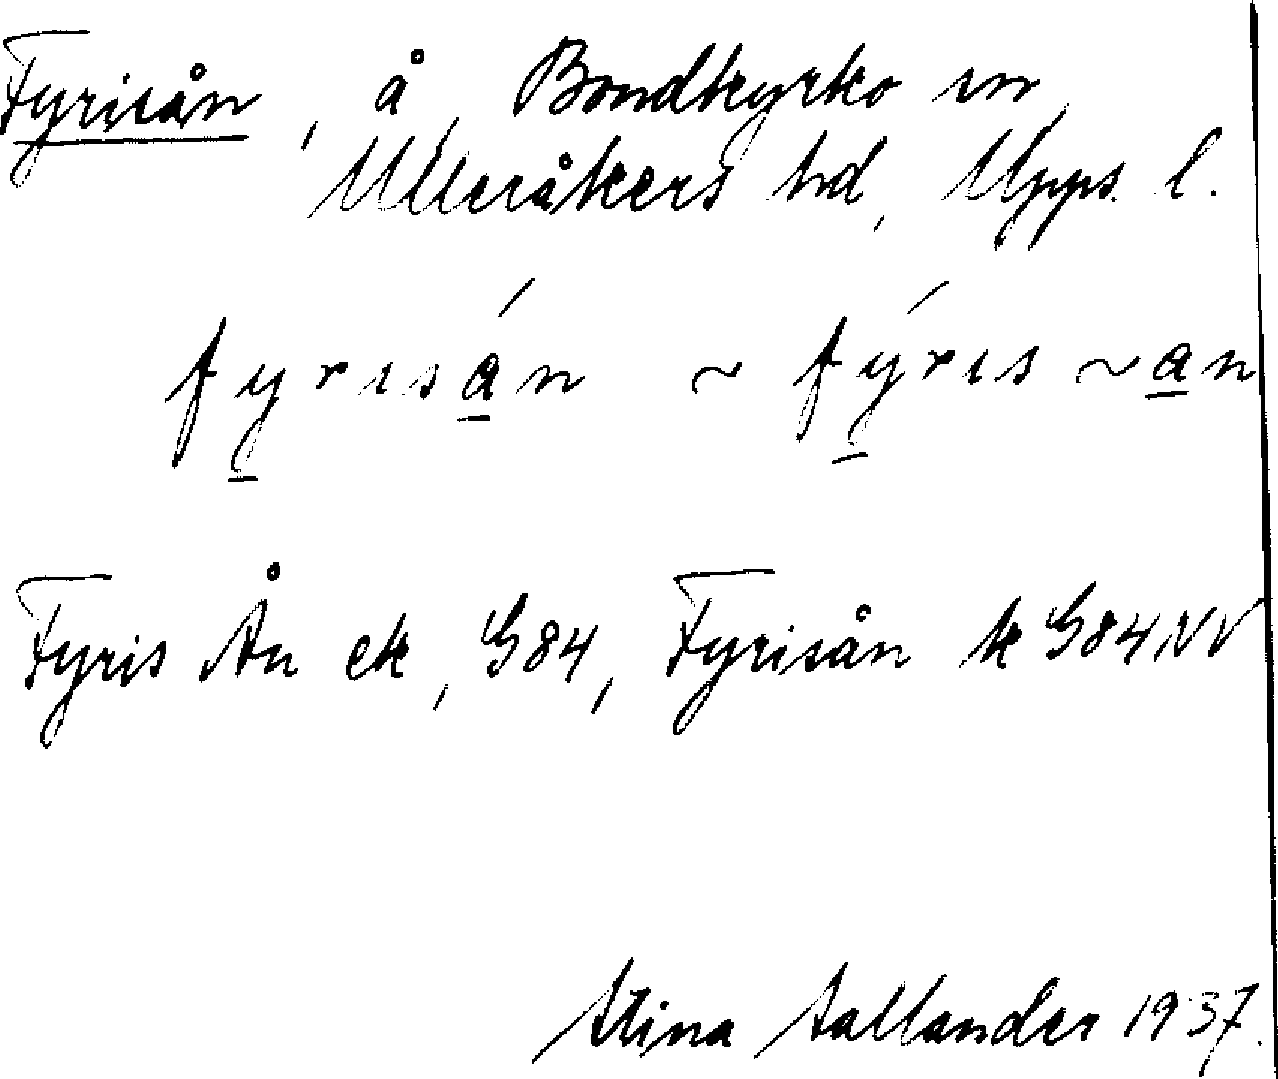 Fyrisån, å, Bondkyrko sn,
Ulleråkers hd, Upps. l.
fyrisán ~ fýris ~ an
Fyris Ån ek, G84, Fyrisån k G84NV
Stina Sallander 1937.